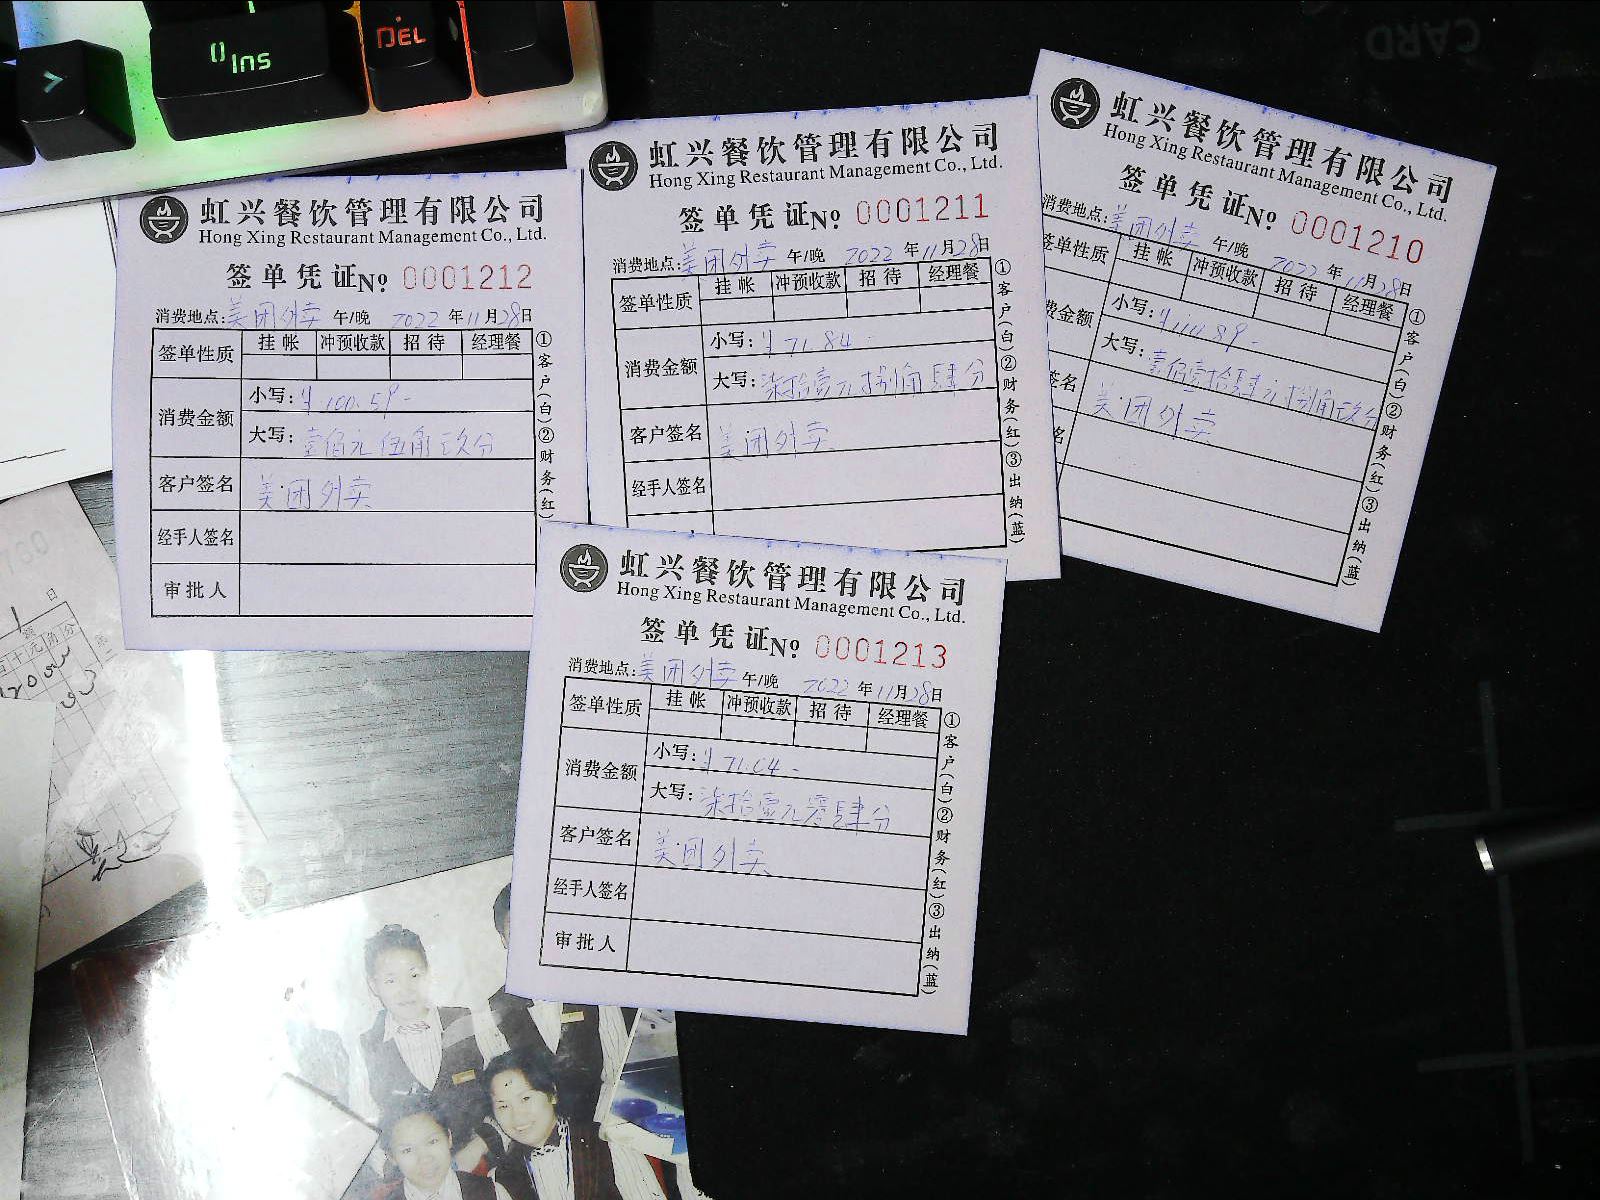 Ins
DEL
CARD
虹兴餐饮管理有限公司
Hong Xing Restaurant Management Co., Ltd.
签单凭证 № 0001212
消费地点: 美团外卖 午/晚 2022年11月28日
签单性质 挂帐 冲预收款 招待 经理餐
消费金额 小写: ¥100.59-
大写: 壹佰元伍角玖分
客户签名 美团外卖
经手人签名
审批人
①客户(白)②财务(红)
虹兴餐饮管理有限公司
Hong Xing Restaurant Management Co., Ltd.
签单凭证 № 0001211
消费地点: 美团外卖 午/晚 2022年11月28日
签单性质 挂帐 冲预收款 招待 经理餐
消费金额 小写: ¥71.84-
大写: 柒拾壹元捌角肆分
客户签名 美团外卖
经手人签名
①客户(白)②财务(红)③出纳(蓝)
虹兴餐饮管理有限公司
Hong Xing Restaurant Management Co., Ltd.
签单凭证 № 0001210
消费地点: 美团外卖 午/晚 2022年11月28日
签单性质 挂帐 冲预收款 招待 经理餐
费金额 小写: ¥114.89-
大写: 壹佰壹拾肆元捌角玖分
签名 美团外卖
名
①客户(白)②财务(红)③出纳(蓝)
虹兴餐饮管理有限公司
Hong Xing Restaurant Management Co., Ltd.
签单凭证 № 0001213
消费地点: 美团外卖 午/晚 2022年11月28日
签单性质 挂帐 冲预收款 招待 经理餐
消费金额 小写: ¥71.04-
大写: 柒拾壹元零肆分
客户签名 美团外卖
经手人签名
审批人
①客户(白)②财务(红)③出纳(蓝)